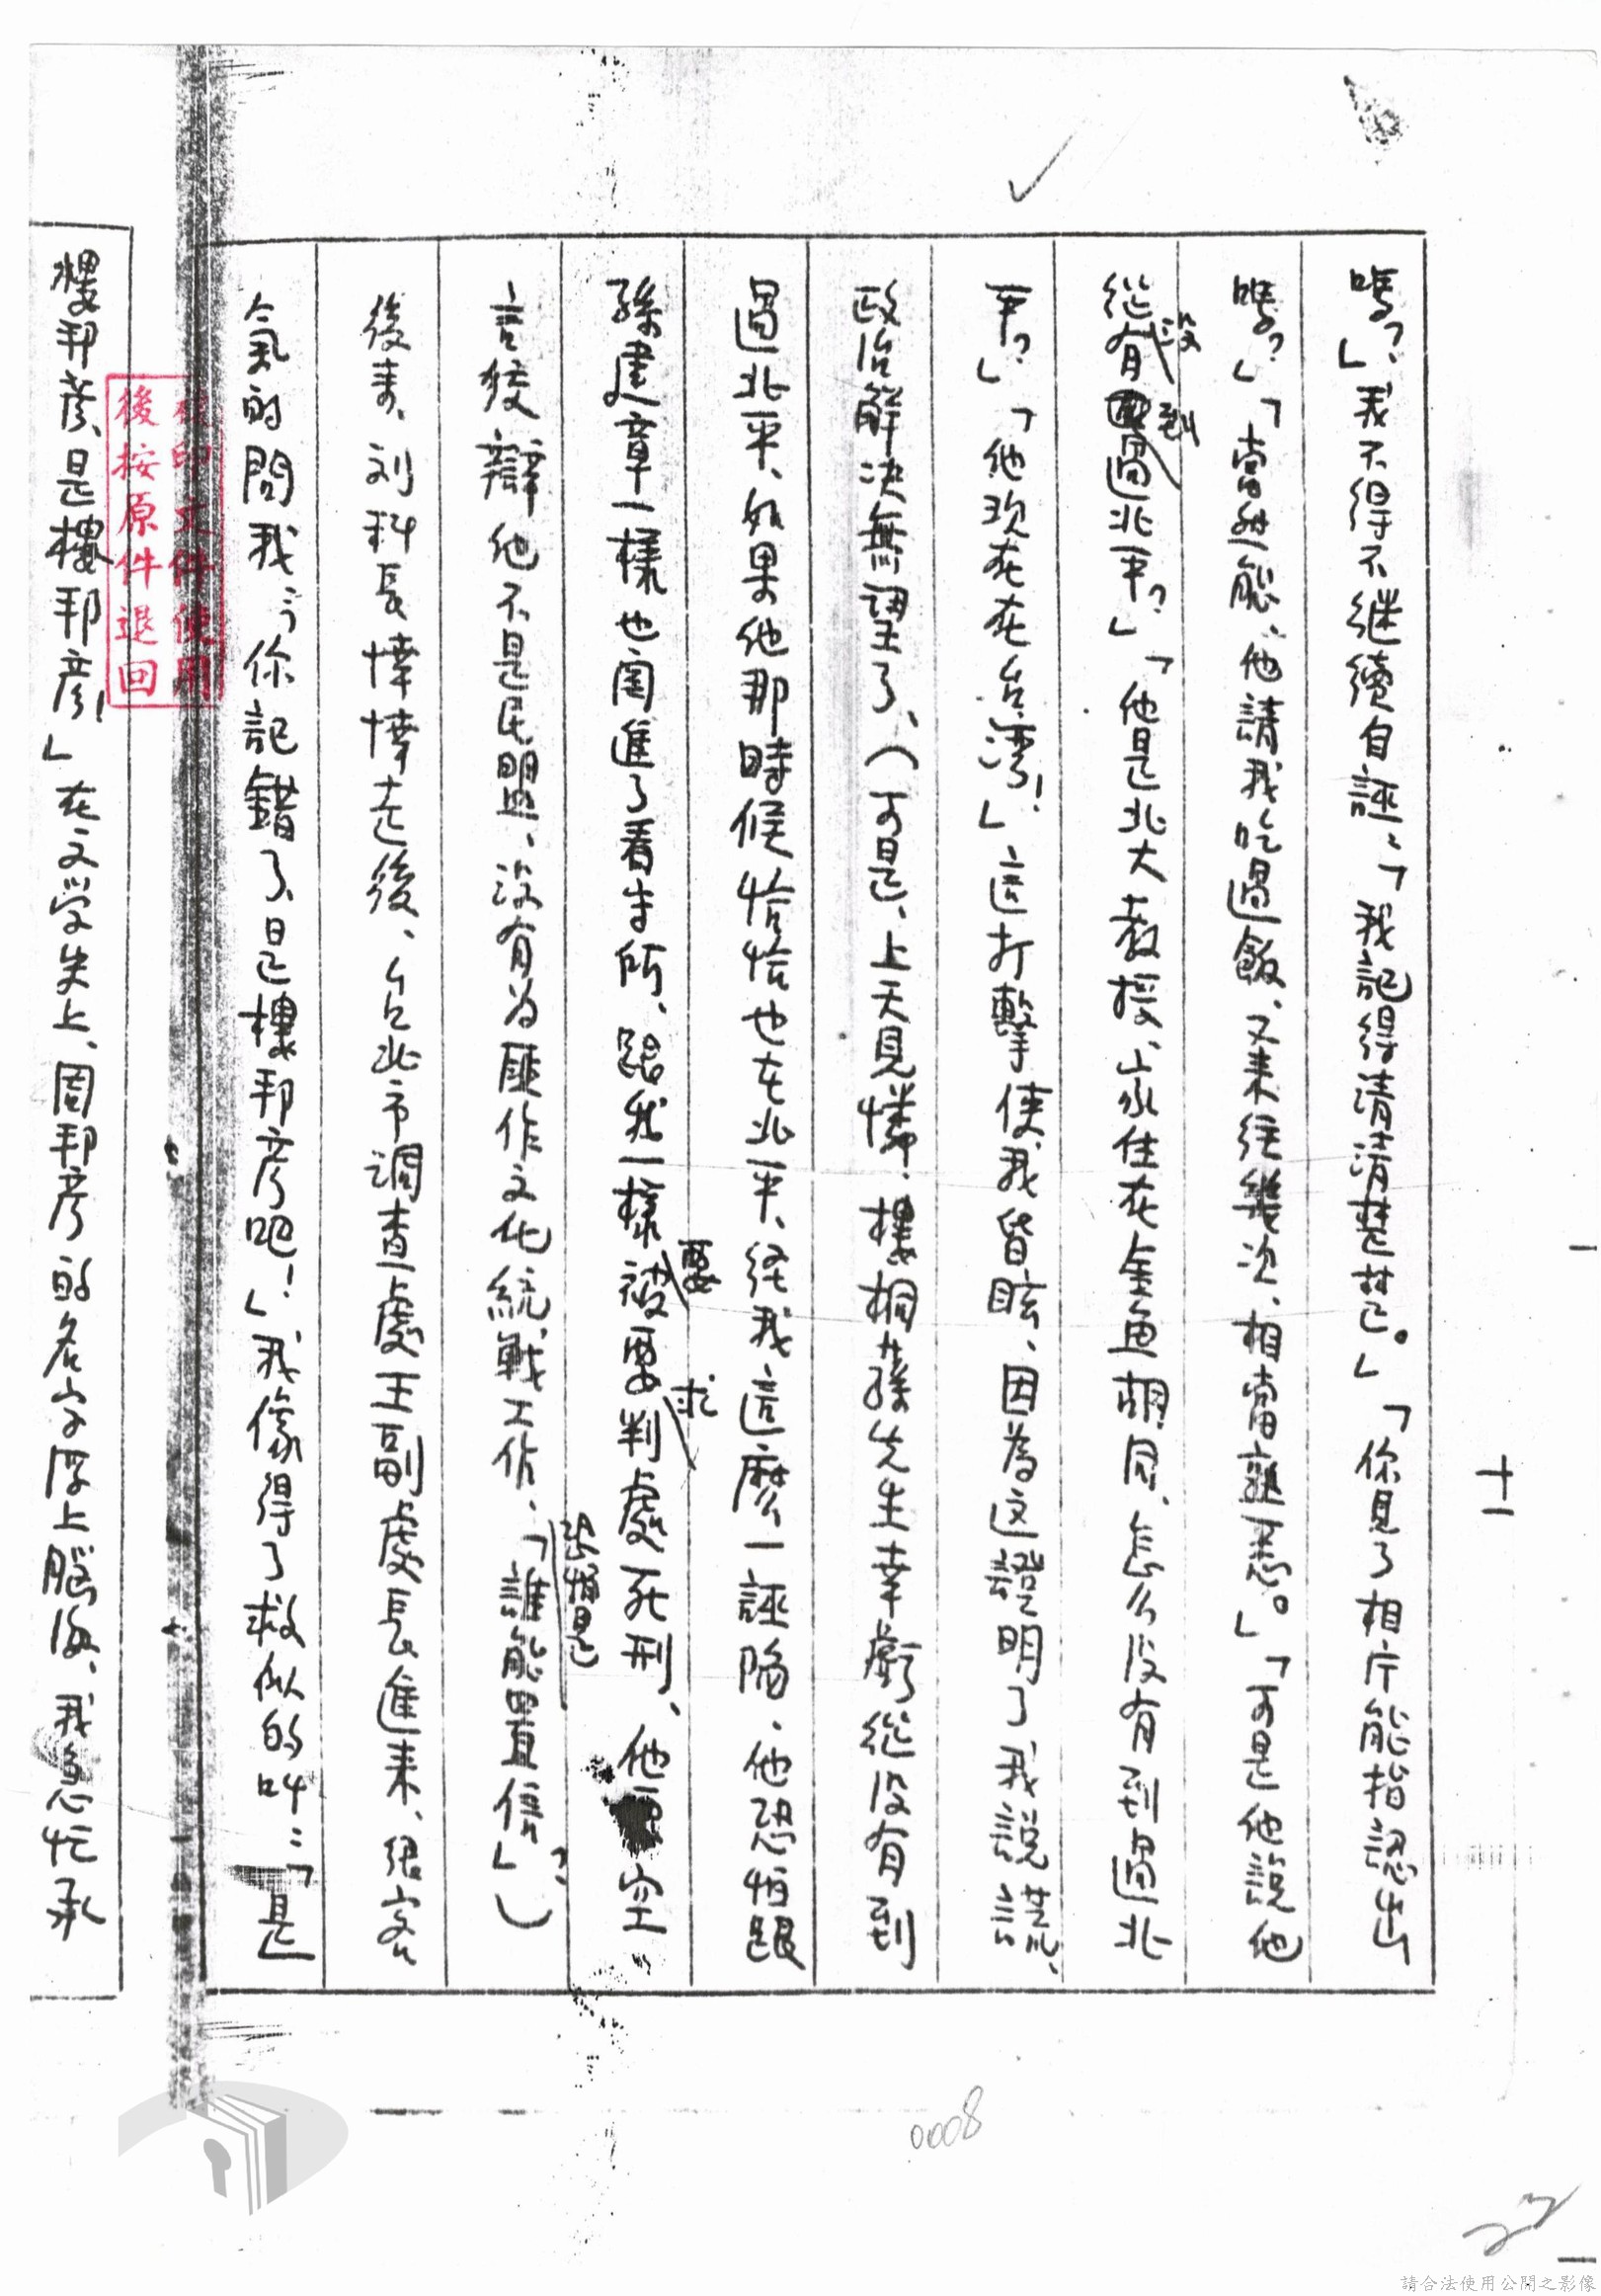 十一
嗎？」我不得不继續自誣：「我記得清清楚楚。」「你見了相片能指認出
嗎？」「當然能，他請我吃過飯、又来往幾次、相當熟悉。」「可是他說他
從沒有到過北平？」「他是北大教授、家住在金魚胡同、怎么没有到過北
平？」「他现在在台湾！」這打擊使我昏眩、因為这證明了我說謊、
政治解决無望了、（可是、上天見憐，樓桐蓀先生幸虧從没有到
過北平、如果他那時候恰恰也在北平、经我這麽一誣陷、他恐怕跟
孫建章一樣也闖進了看守所、跟我一樣被要求判處死刑、他空
言狡辯他不是民盟、沒有為匪作文化統戰工作、「誰能置信」？）
後来、刘科長悻悻走後、台北市调查處王副處長進来、很客
氣的問我：「你記錯了、是樓邦彦吧！」我像得了救似的叫：「是
樓邦彦、是樓邦彦！」在文学史上、周邦彦的名字浮上腦海、我急忙承
文件使用
後按原件退回
0008
請合法使用公開之影像